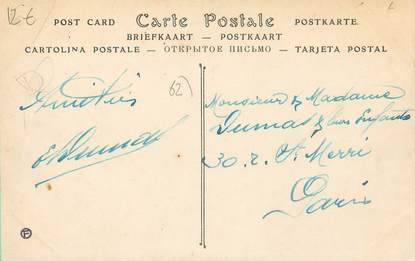 12 €
POST CARD Carte Postale POSTKARTE
BRIEFKAART — POSTKAART
CARTOLINA POSTALE — ОТКРЫТОЕ ПИСЬМО — TARJETA POSTAL
Amitiés
62
Monsieur & Madame
Dumas & leurs Enfants
30 r. St Merri
Paris